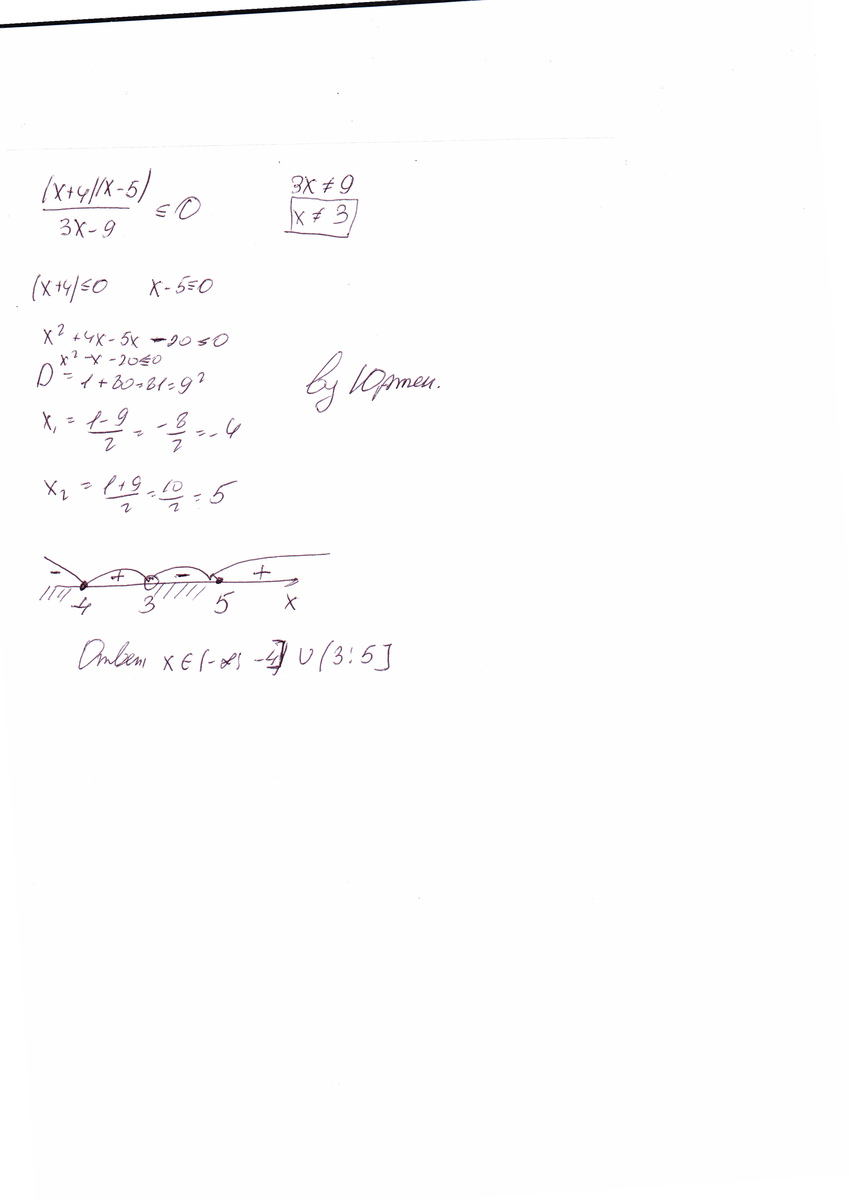 (x+4)(x-5)
3x-9
≤ 0
3x ≠ 9
x ≠ 3
(x+4)≤0 x-5≤0
x² +4x-5x -20≤0
x²-x-20≤0
D = 1+80=81=9²
x₁ = 1-9/2 = -8/2 = -4
x₂ = 1+9/2 = 10/2 = 5
by
- + - +
-4 3 5 x
Ответ x∈(-∞; -4] ∪ (3; 5]